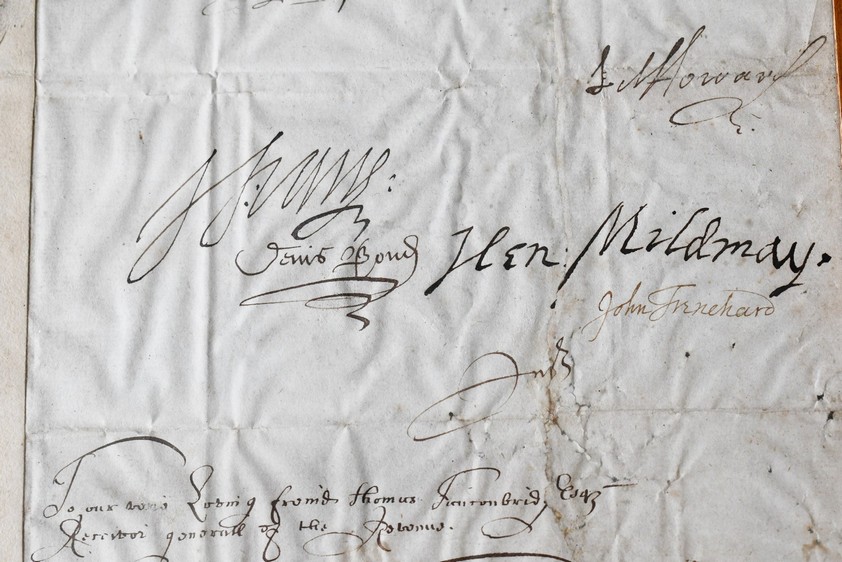 Howard
H: Vane:
Denis Bond Hen: Mildmay.
John Trenchard
To our verie Loving freind Thomas Fauconbridg Esqr
Receivor generall of the Revenue.